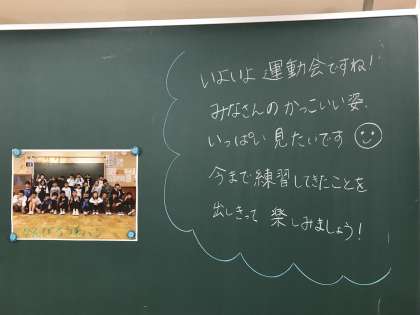 いよいよ 運動会ですね!
みなさんの かっこいい 姿、
いっぱい 見たいです
今まで練習してきたことを
出しきって 楽しみましょう!